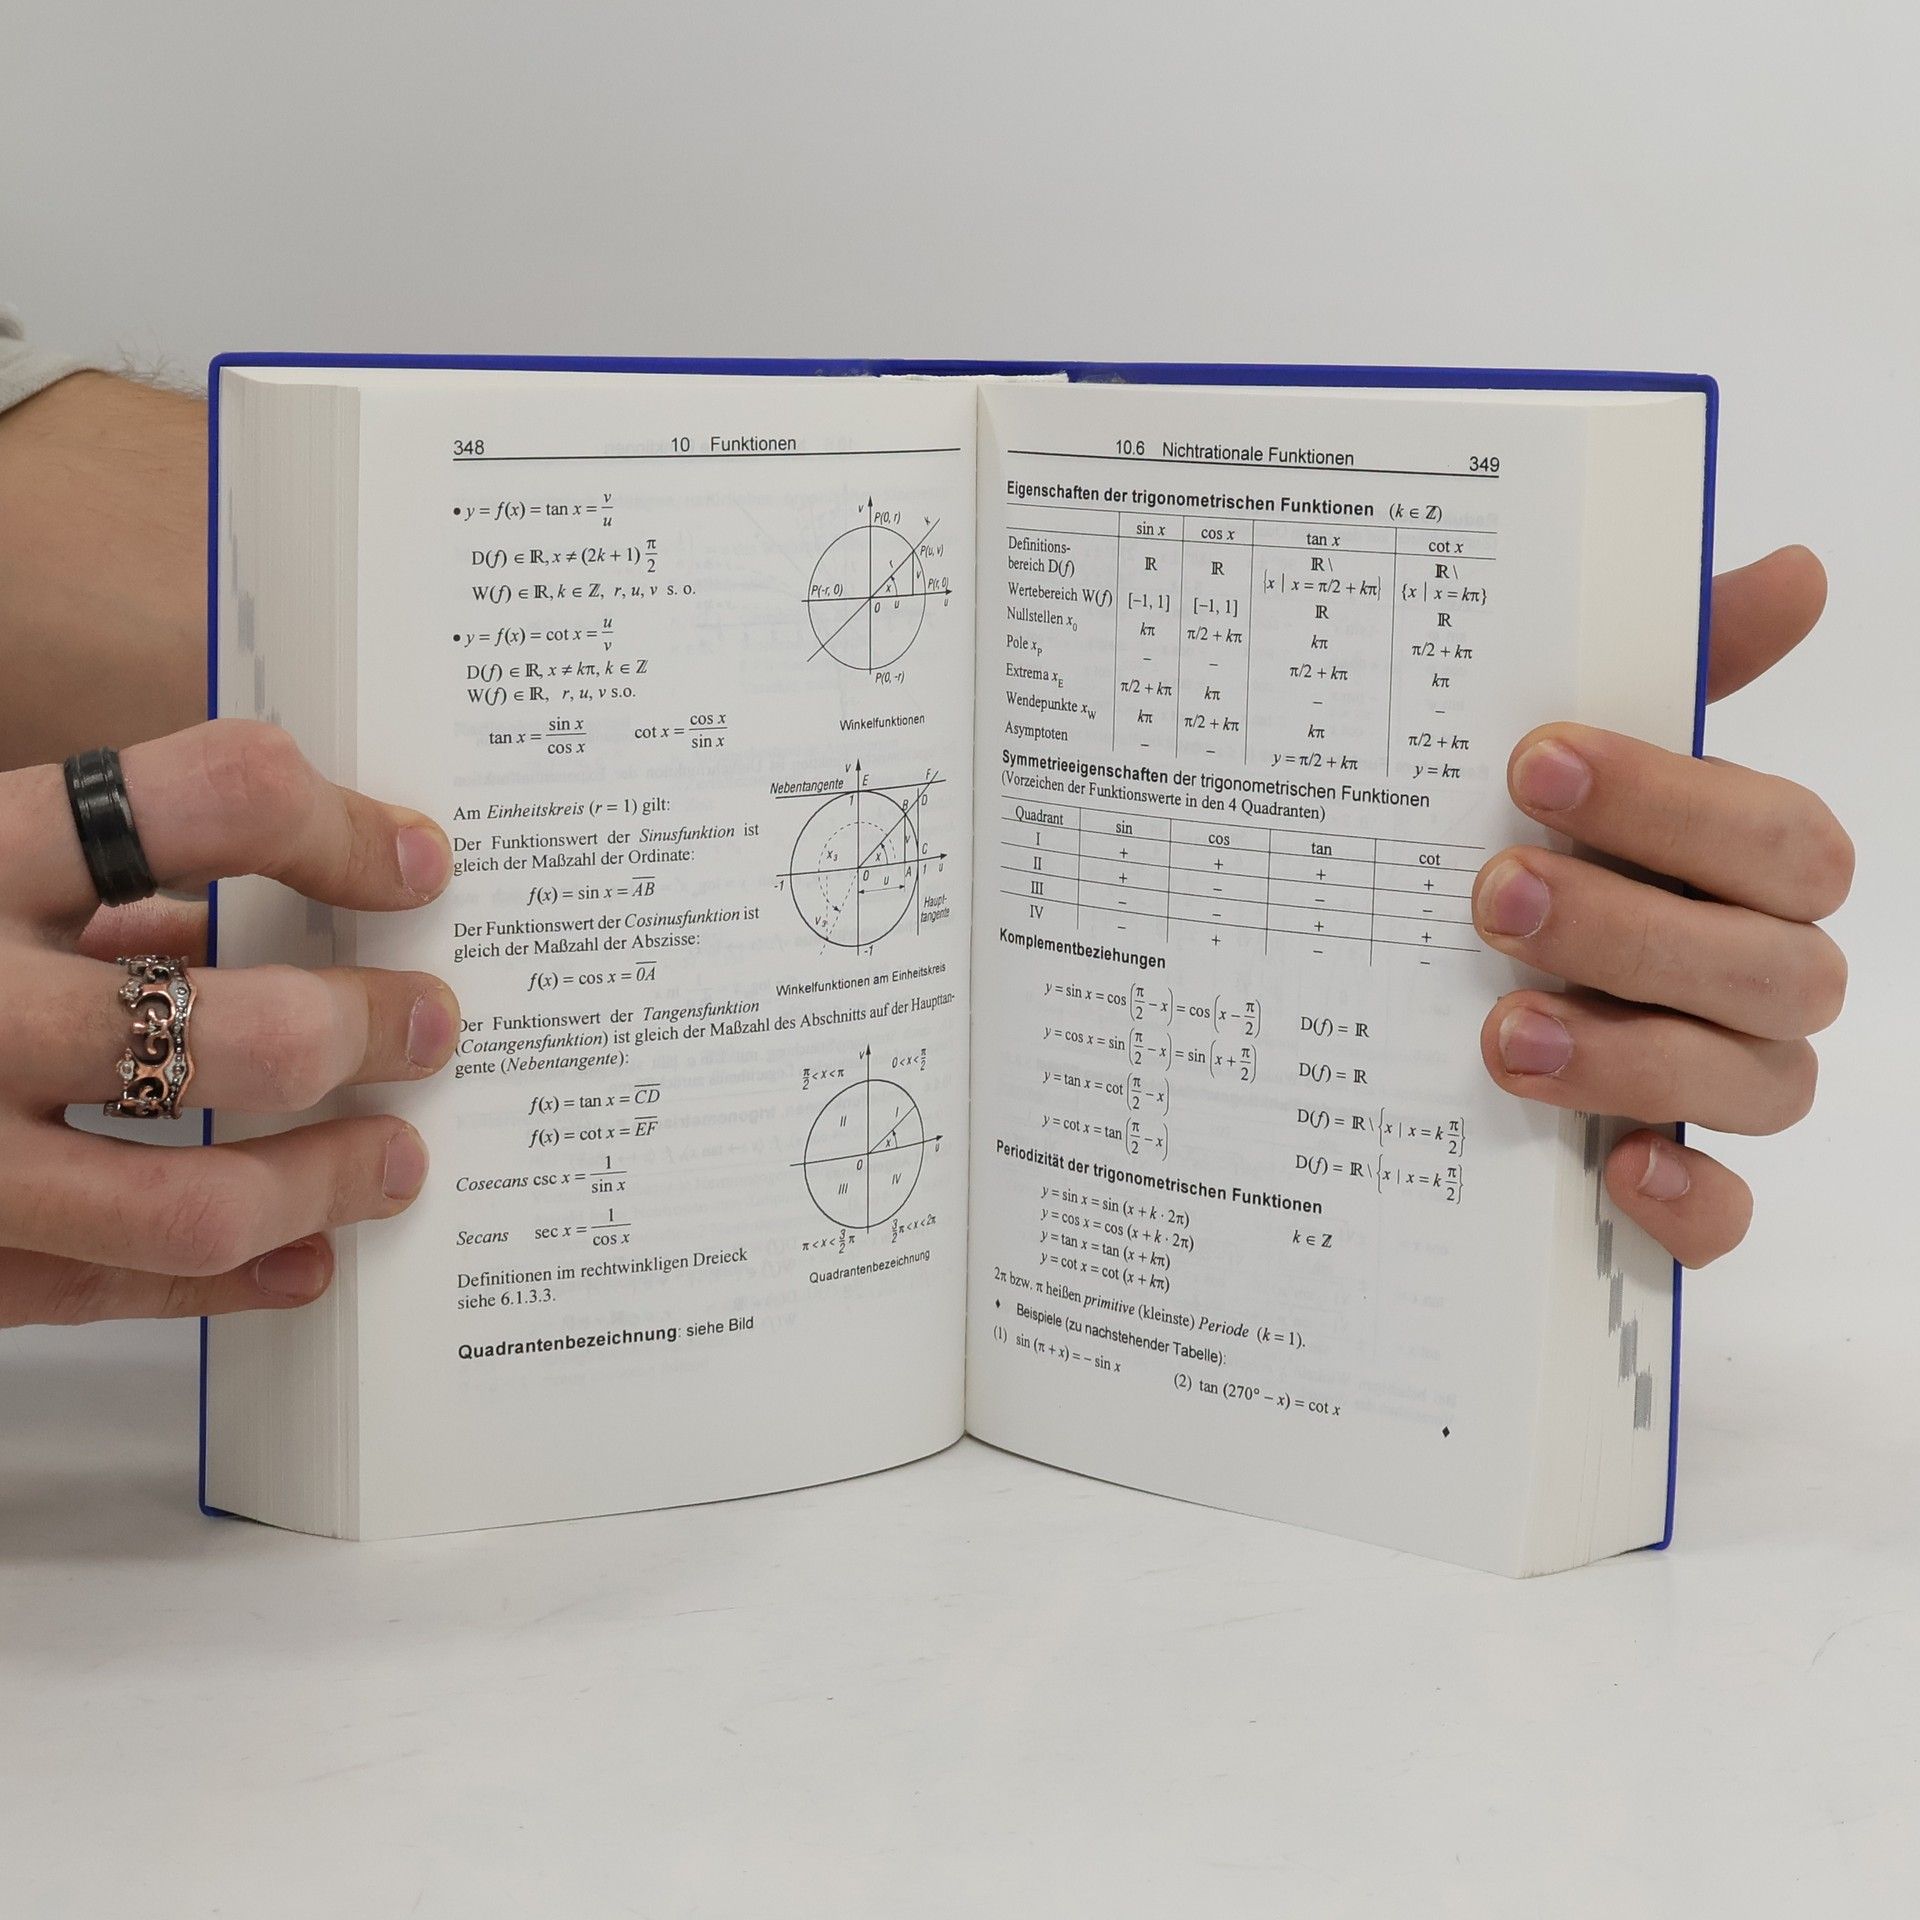 348 10 Funktionen
• y = f(x) = tan x = v/u
D(f) ∈ ℝ, x ≠ (2k + 1) π/2
W(f) ∈ ℝ, k ∈ ℤ, r, u, v s. o.
• y = f(x) = cot x = u/v
D(f) ∈ ℝ, x ≠ kπ, k ∈ ℤ
W(f) ∈ ℝ, r, u, v s.o.
tan x = sin x/cos x cot x = cos x/sin x
v P(0, r)
P(u, v)
r v
P(-r, 0) x P(r, 0)
0 u u
P(0, -r)
Winkelfunktionen
Am Einheitskreis (r = 1) gilt:
Der Funktionswert der Sinusfunktion ist
gleich der Maßzahl der Ordinate:
f(x) = sin x = A̅B̅
Der Funktionswert der Cosinusfunktion ist
gleich der Maßzahl der Abszisse:
f(x) = cos x = 0̅A̅
v E F
Nebentangente
1 B D
x₃ x v C
-1 0 u A 1 u
v₃
Haupt-
tangente
-1
Winkelfunktionen am Einheitskreis
Der Funktionswert der Tangensfunktion
(Cotangensfunktion) ist gleich der Maßzahl des Abschnitts auf der Haupttan-
gente (Nebentangente):
f(x) = tan x = C̅D̅
f(x) = cot x = E̅F̅
Cosecans csc x = 1/sin x
Secans sec x = 1/cos x
Definitionen im rechtwinkligen Dreieck
siehe 6.1.3.3.
Quadrantenbezeichnung: siehe Bild
v
π/2 < x < π 0 < x < π/2
II I
x
0 u
III IV
π < x < 3/2 π 3/2 π < x < 2π
Quadrantenbezeichnung
10.6 Nichtrationale Funktionen 349
Eigenschaften der trigonometrischen Funktionen (k ∈ ℤ)
sin x cos x tan x cot x
Definitions-
bereich D(f) ℝ ℝ ℝ \ {x | x = π/2 + kπ} ℝ \ {x | x = kπ}
Wertebereich W(f) [−1, 1] [−1, 1] ℝ ℝ
Nullstellen x₀ kπ π/2 + kπ kπ π/2 + kπ
Pole x_P – – π/2 + kπ kπ
Extrema x_E π/2 + kπ kπ – –
Wendepunkte x_W kπ π/2 + kπ kπ π/2 + kπ
Asymptoten – – y = π/2 + kπ y = kπ
Symmetrieeigenschaften der trigonometrischen Funktionen
(Vorzeichen der Funktionswerte in den 4 Quadranten)
Quadrant sin cos tan cot
I + + + +
II + – – –
III – – + +
IV – + – –
Komplementbeziehungen
y = sin x = cos (π/2 − x) = cos (x − π/2) D(f) = ℝ
y = cos x = sin (π/2 − x) = sin (x + π/2) D(f) = ℝ
y = tan x = cot (π/2 − x) D(f) = ℝ \ {x | x = k π/2}
y = cot x = tan (π/2 − x) D(f) = ℝ \ {x | x = k π/2}
Periodizität der trigonometrischen Funktionen
y = sin x = sin (x + k · 2π)
y = cos x = cos (x + k · 2π) k ∈ ℤ
y = tan x = tan (x + kπ)
y = cot x = cot (x + kπ)
2π bzw. π heißen primitive (kleinste) Periode (k = 1).
♦ Beispiele (zu nachstehender Tabelle):
(1) sin (π + x) = − sin x (2) tan (270° − x) = cot x
♦